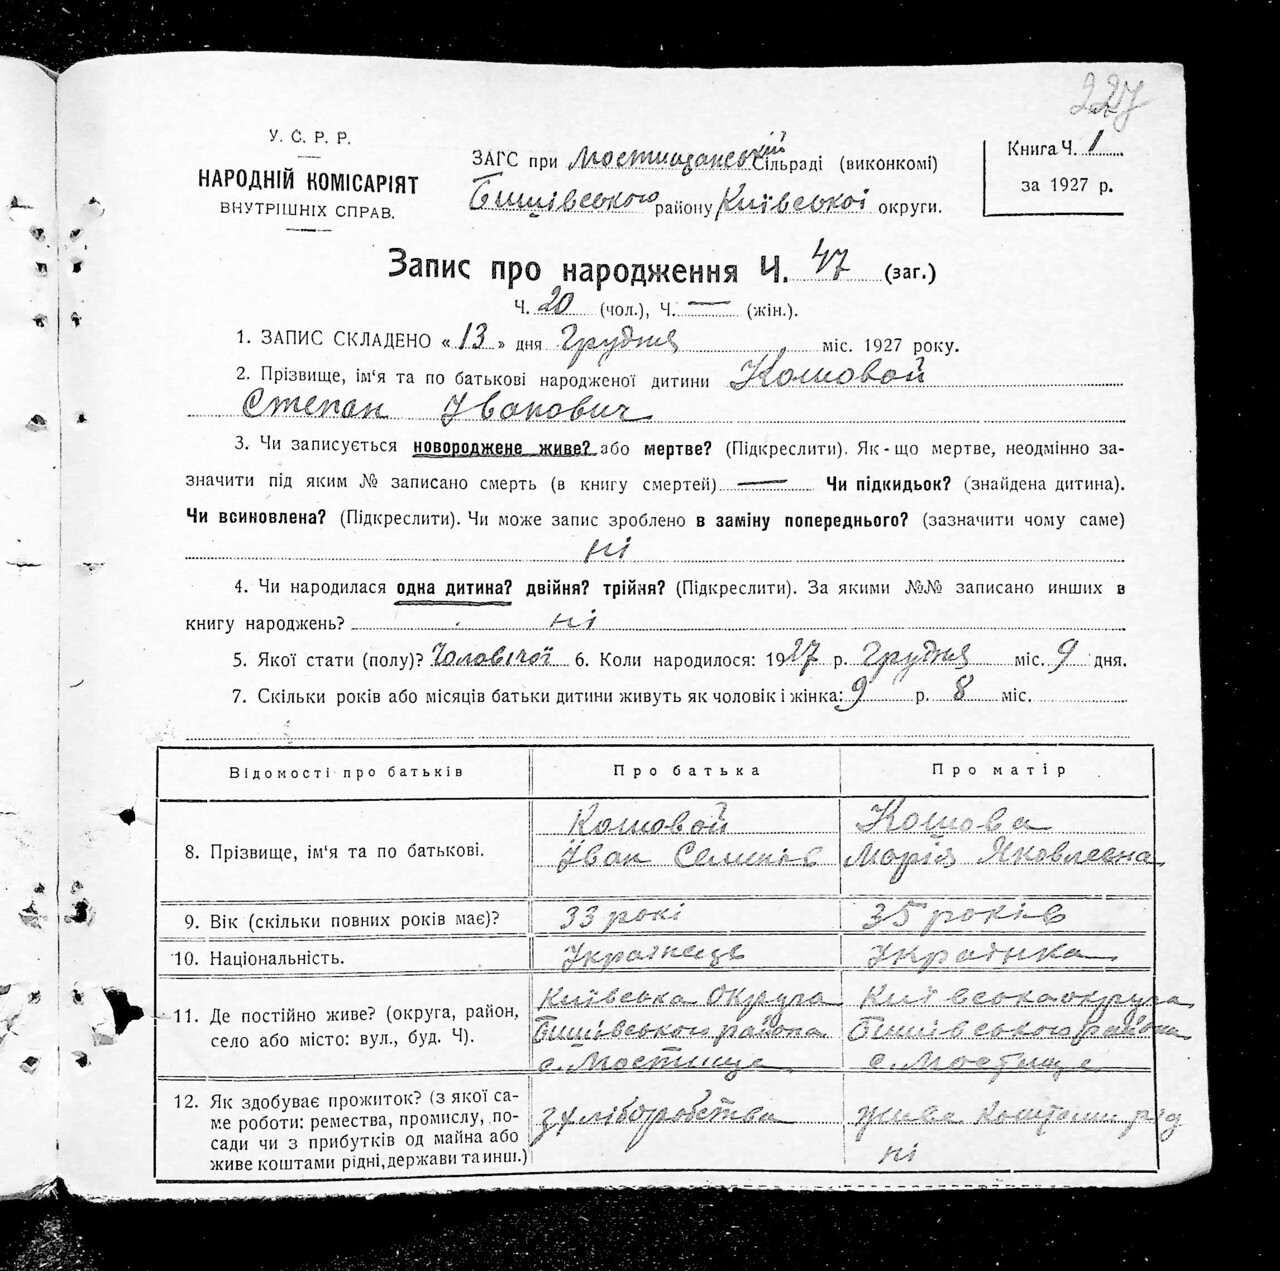 227
У. С. Р. Р.
НАРОДНІЙ КОМІСАРІЯТ
ВНУТРІШНІХ СПРАВ.
ЗАГС при Мостищанській сільраді (виконкомі)
Бишівського району Київської округи.
Книга Ч. 1
за 1927 р.
Запис про народження Ч. 47 (заг.)
Ч. 20 (чол.), Ч. — (жін.).
1. ЗАПИС СКЛАДЕНО « 13 » дня Грудня міс. 1927 року.
2. Прізвище, ім'я та по батькові народженої дитини Кошовой
Степан Іванович
3. Чи записується новороджене живе? або мертве? (Підкреслити). Як-що мертве, неодмінно за-
значити під яким № записано смерть (в книгу смертей) — Чи підкидьок? (знайдена дитина).
Чи всиновлена? (Підкреслити). Чи може запис зроблено в заміну попереднього? (зазначити чому саме)
ні
4. Чи народилася одна дитина? двійня? трійня? (Підкреслити). За якими №№ записано инших в
книгу народжень? ні
5. Якої стати (полу)? Чоловічої 6. Коли народилося: 1927 р. Грудня міс. 9 дня.
7. Скільки років або місяців батьки дитини живуть як чоловік і жінка: 9 р. 8 міс.
Відомості про батьків Про батька Про матір
8. Прізвище, ім'я та по батькові.
Кошовой
Іван
Кошова
Марія Яковлевна
9. Вік (скільки повних років має)? 33 рокі 35 років
10. Національність. Українець Українка
11. Де постійно живе? (округа, район,
село або місто: вул., буд. Ч).
Київська округа
Бишівського района
с. Мостище
Київська округа
Бишівського района
с. Мостище
12. Як здобуває прожиток? (з якої са-
ме роботи: ремества, промислу, по-
сади чи з прибутків од майна або
живе коштами рідні, держави та инш.)
з хліборобства
живе коштами рід
ні